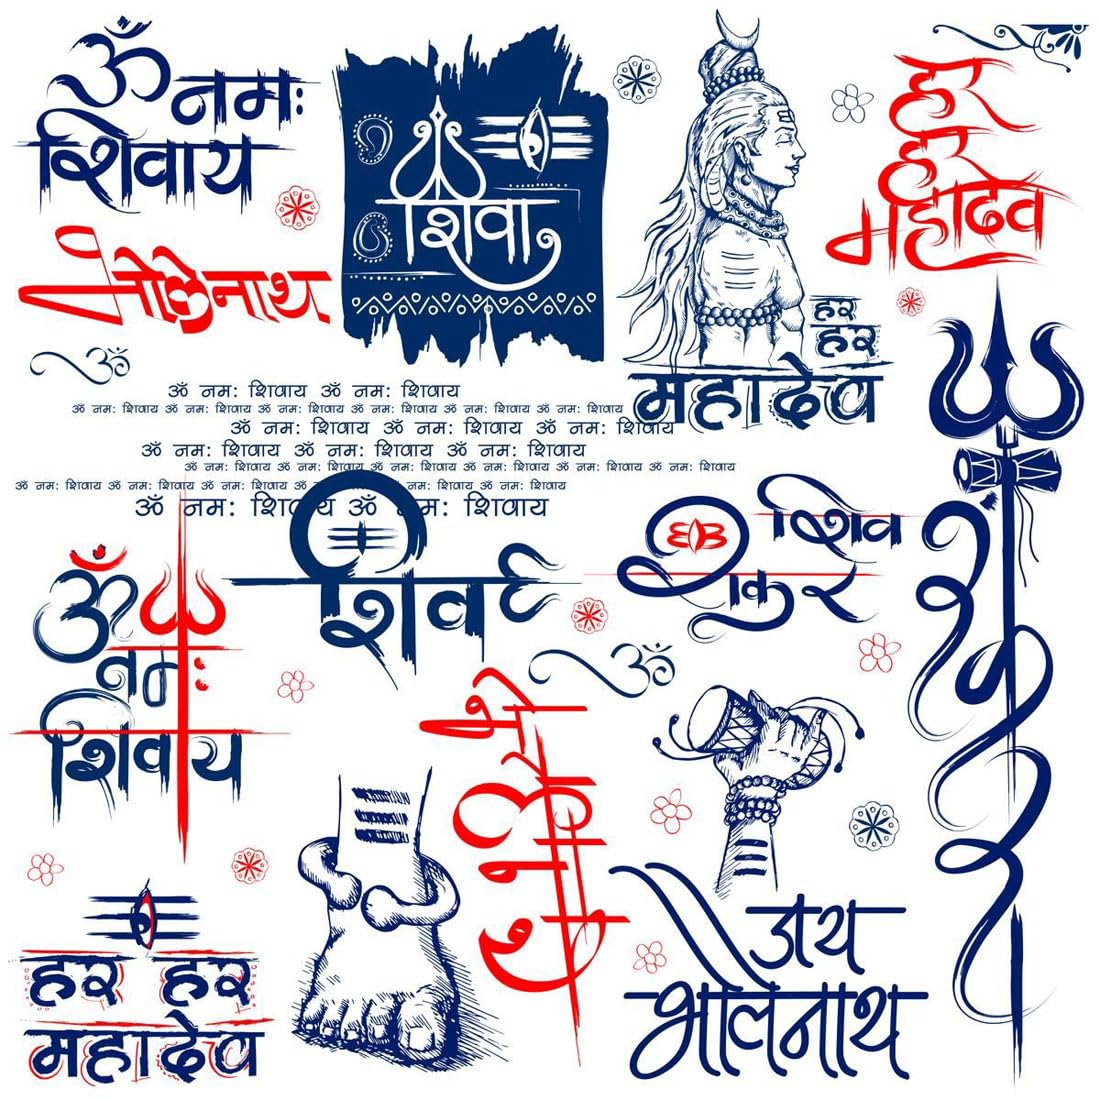 ॐ नमः
शिवाय
शिवा
हर
हर
महादेव
भोलेनाथ
हर
हर
महादेव
ॐ
ॐ नमः शिवाय ॐ नमः शिवाय
ॐ नमः शिवाय ॐ नमः शिवाय ॐ नमः शिवाय ॐ नमः शिवाय ॐ नमः शिवाय ॐ नमः शिवाय
ॐ नमः शिवाय ॐ नमः शिवाय ॐ नमः शिवाय
ॐ नमः शिवाय ॐ नमः शिवाय ॐ नमः शिवाय
ॐ नमः शिवाय ॐ नमः शिवाय ॐ नमः शिवाय ॐ नमः शिवाय ॐ नमः शिवाय ॐ नमः शिवाय
ॐ नमः शिवाय ॐ नमः शिवाय ॐ नमः शिवाय ॐ नमः शिवाय ॐ नमः शिवाय ॐ नमः शिवाय
ॐ नमः शिवाय ॐ नमः शिवाय
ॐ
नमः
शिवाय
शिव
शिव
शंकर
शंकर
ॐ
भोलेनाथ
हर हर
महादेव
जय
भोलेनाथ